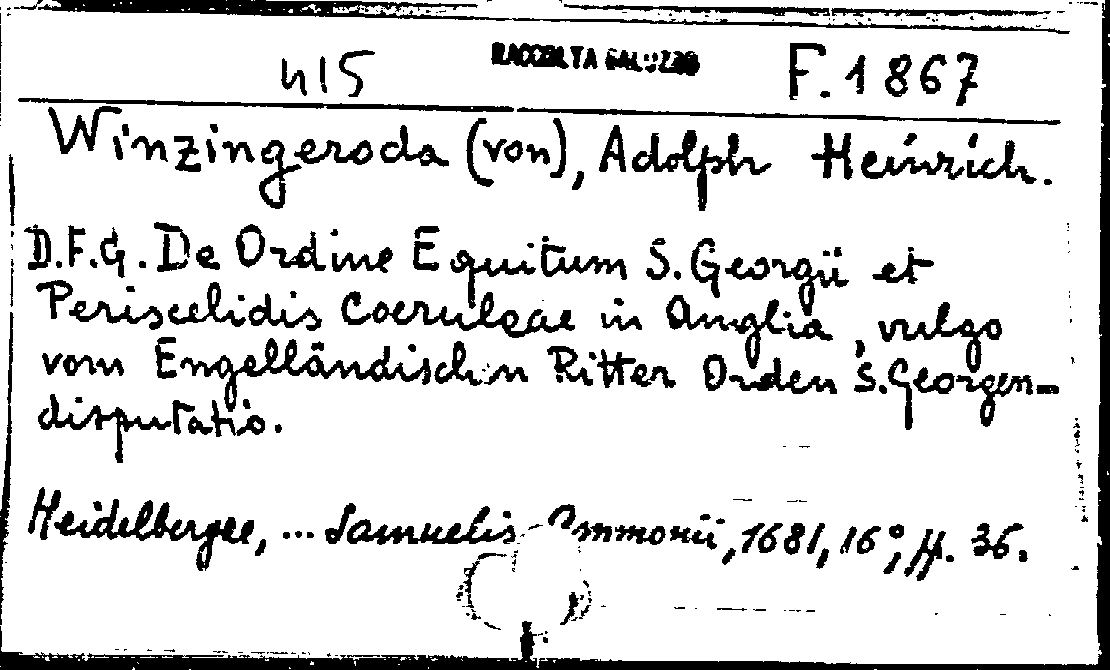 415 RACCOLTA SALUZZO F. 1867
Winzingeroda (von), Adolph Heinrich.
D.F.G. De Ordine Equitum S. Georgii et
Periscelidis Coeruleae in Anglia, vulgo
vom Engelländischen Ritter Orden S. Georgen-
disputatio.
Heidelbergae, ... Samuelis Ammonii, 1681, 16°, pp. 36.